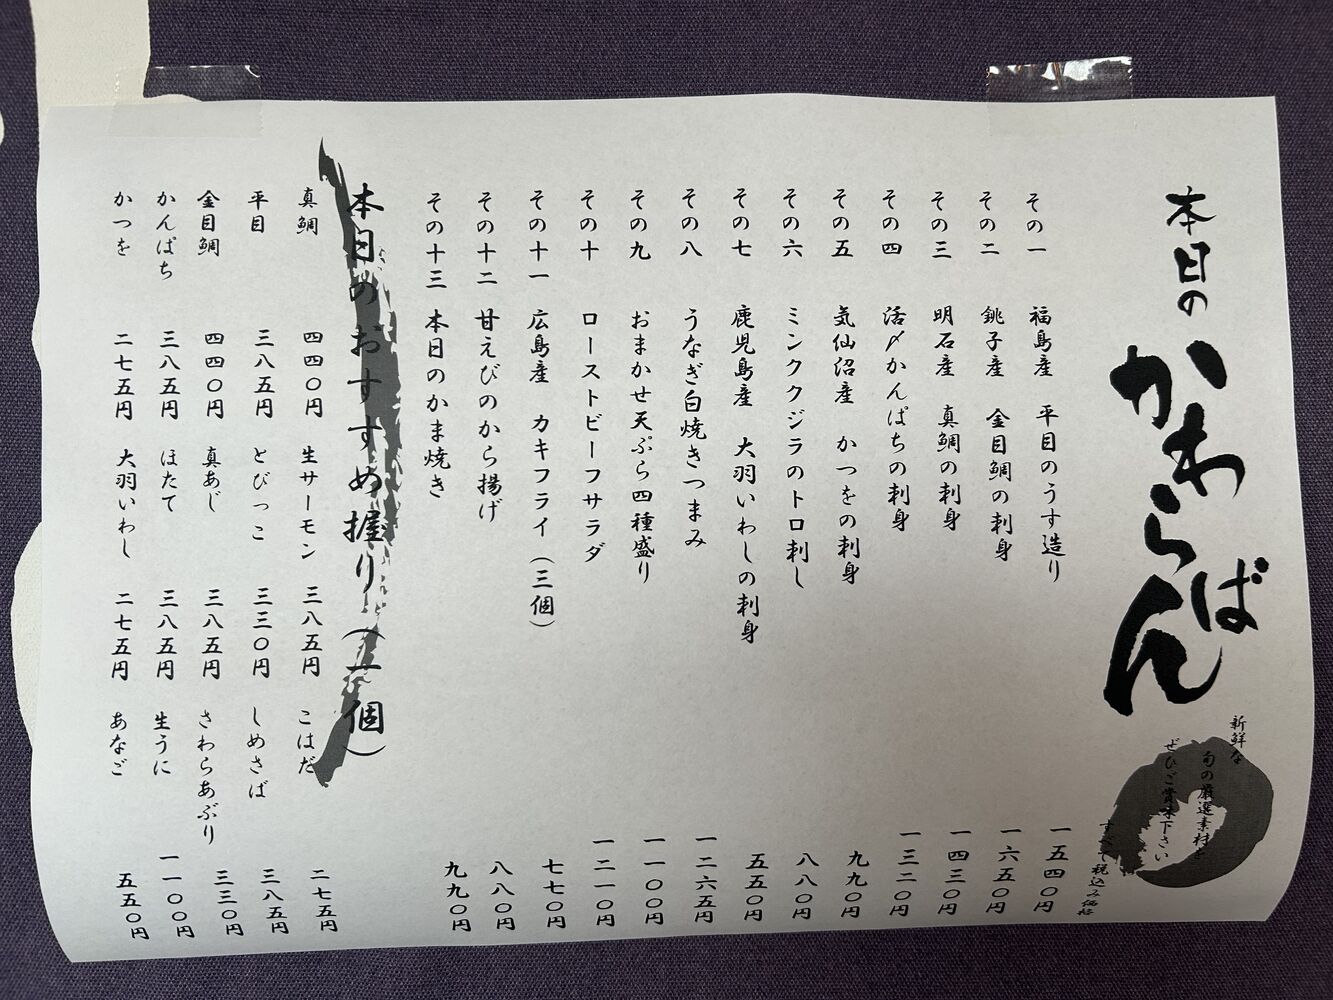 本日の
かわらばん
新鮮な
旬の厳選素材を
ぜひご賞味下さい
すべて税込み価格
その一 福島産 平目のうす造り 一五四〇円
その二 銚子産 金目鯛の刺身 一六五〇円
その三 明石産 真鯛の刺身 一四三〇円
その四 活〆かんぱちの刺身 一三二〇円
その五 気仙沼産 かつをの刺身 九九〇円
その六 ミンククジラのトロ刺し 八八〇円
その七 鹿児島産 大羽いわしの刺身 五五〇円
その八 うなぎ白焼きつまみ 一二六五円
その九 おまかせ天ぷら四種盛り 一一〇〇円
その十 ローストビーフサラダ 一二一〇円
その十一 広島産 カキフライ（三個） 七七〇円
その十二 甘えびのから揚げ 八八〇円
その十三 本日のかま焼き 九九〇円
本日のおすすめ握り（一個）
真鯛 四四〇円 生サーモン 三八五円 こはだ 二七五円
平目 三八五円 とびっこ 三三〇円 しめさば 三八五円
金目鯛 四四〇円 真あじ 三八五円 さわらあぶり 三三〇円
かんぱち 三八五円 ほたて 三八五円 生うに 一一〇〇円
かつを 二七五円 大羽いわし 二七五円 あなご 五五〇円